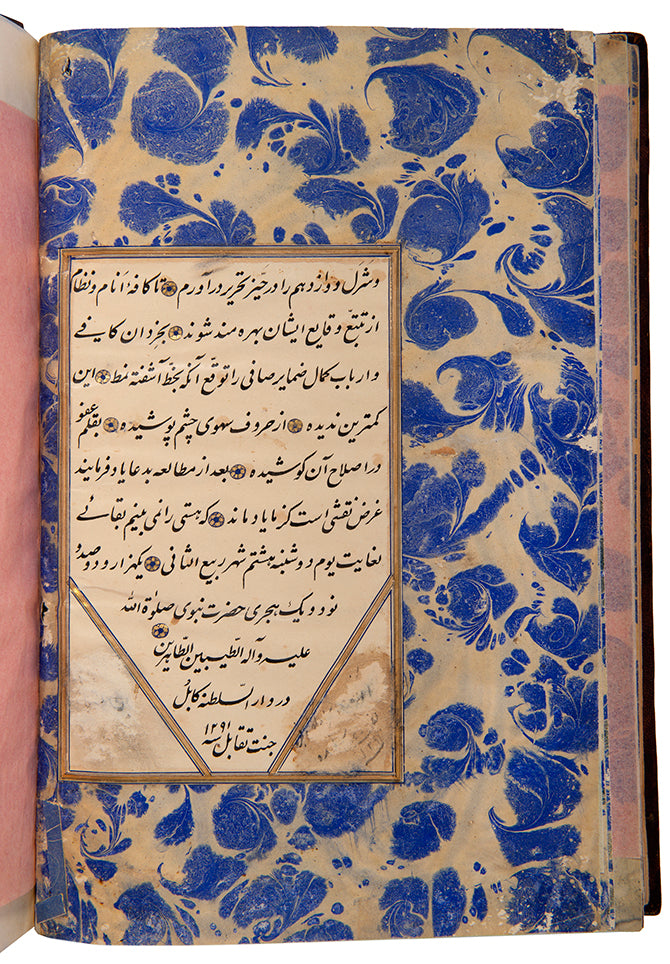 وشرل ووازدهم را در حیّز تحریر درآورم تا کافهٔ انام ونظام
از تتبّع وقایع ایشان بهره مند شوند بخردان کافی
وارباب کمال ضمایر صافی را توقّع آنکه بخطّ آشفته نمط این
کمترین ندیده از حروف سهوی چشم پوشیده بقلم عفو
در اصلاح آن کوشیده بعد از مطالعه بدعا یاد فرمایند
غرض نقشی است کز ما یاد ماند که هستی را نمی بینم بقائے
لغایت یوم دوشنبه هشتم شهر ربیع الثانی یکهزار ودوصد و
نود ویک هجری حضرت نبوی صلوٰة الله
علیه وآله الطیبین الطاهرین
در دار السلطنه کابل
جنت تقابل سنه ۱۲۹۱